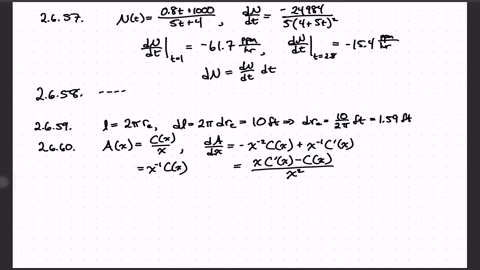 2.6.57. N(t) = (0.8t+1000)/(5t+4), dN/dt = -24984/(5(4+5t)²)
dN/dt|t=1 = -61.7 ppm/hr, dN/dt|t=2.8 = -15.4 ppm/hr
dN = dN/dt dt
2.6.58. ----
2.6.59. l = 2πre, dl = 2π dre = 10 ft ⇒ dre = 10/2π ft = 1.59 ft
2.6.60. A(x) = C(x)/x, dA/dx = -x⁻²C(x) + x⁻¹C'(x)
= x⁻¹C(x) = (xC'(x) - C(x))/x²